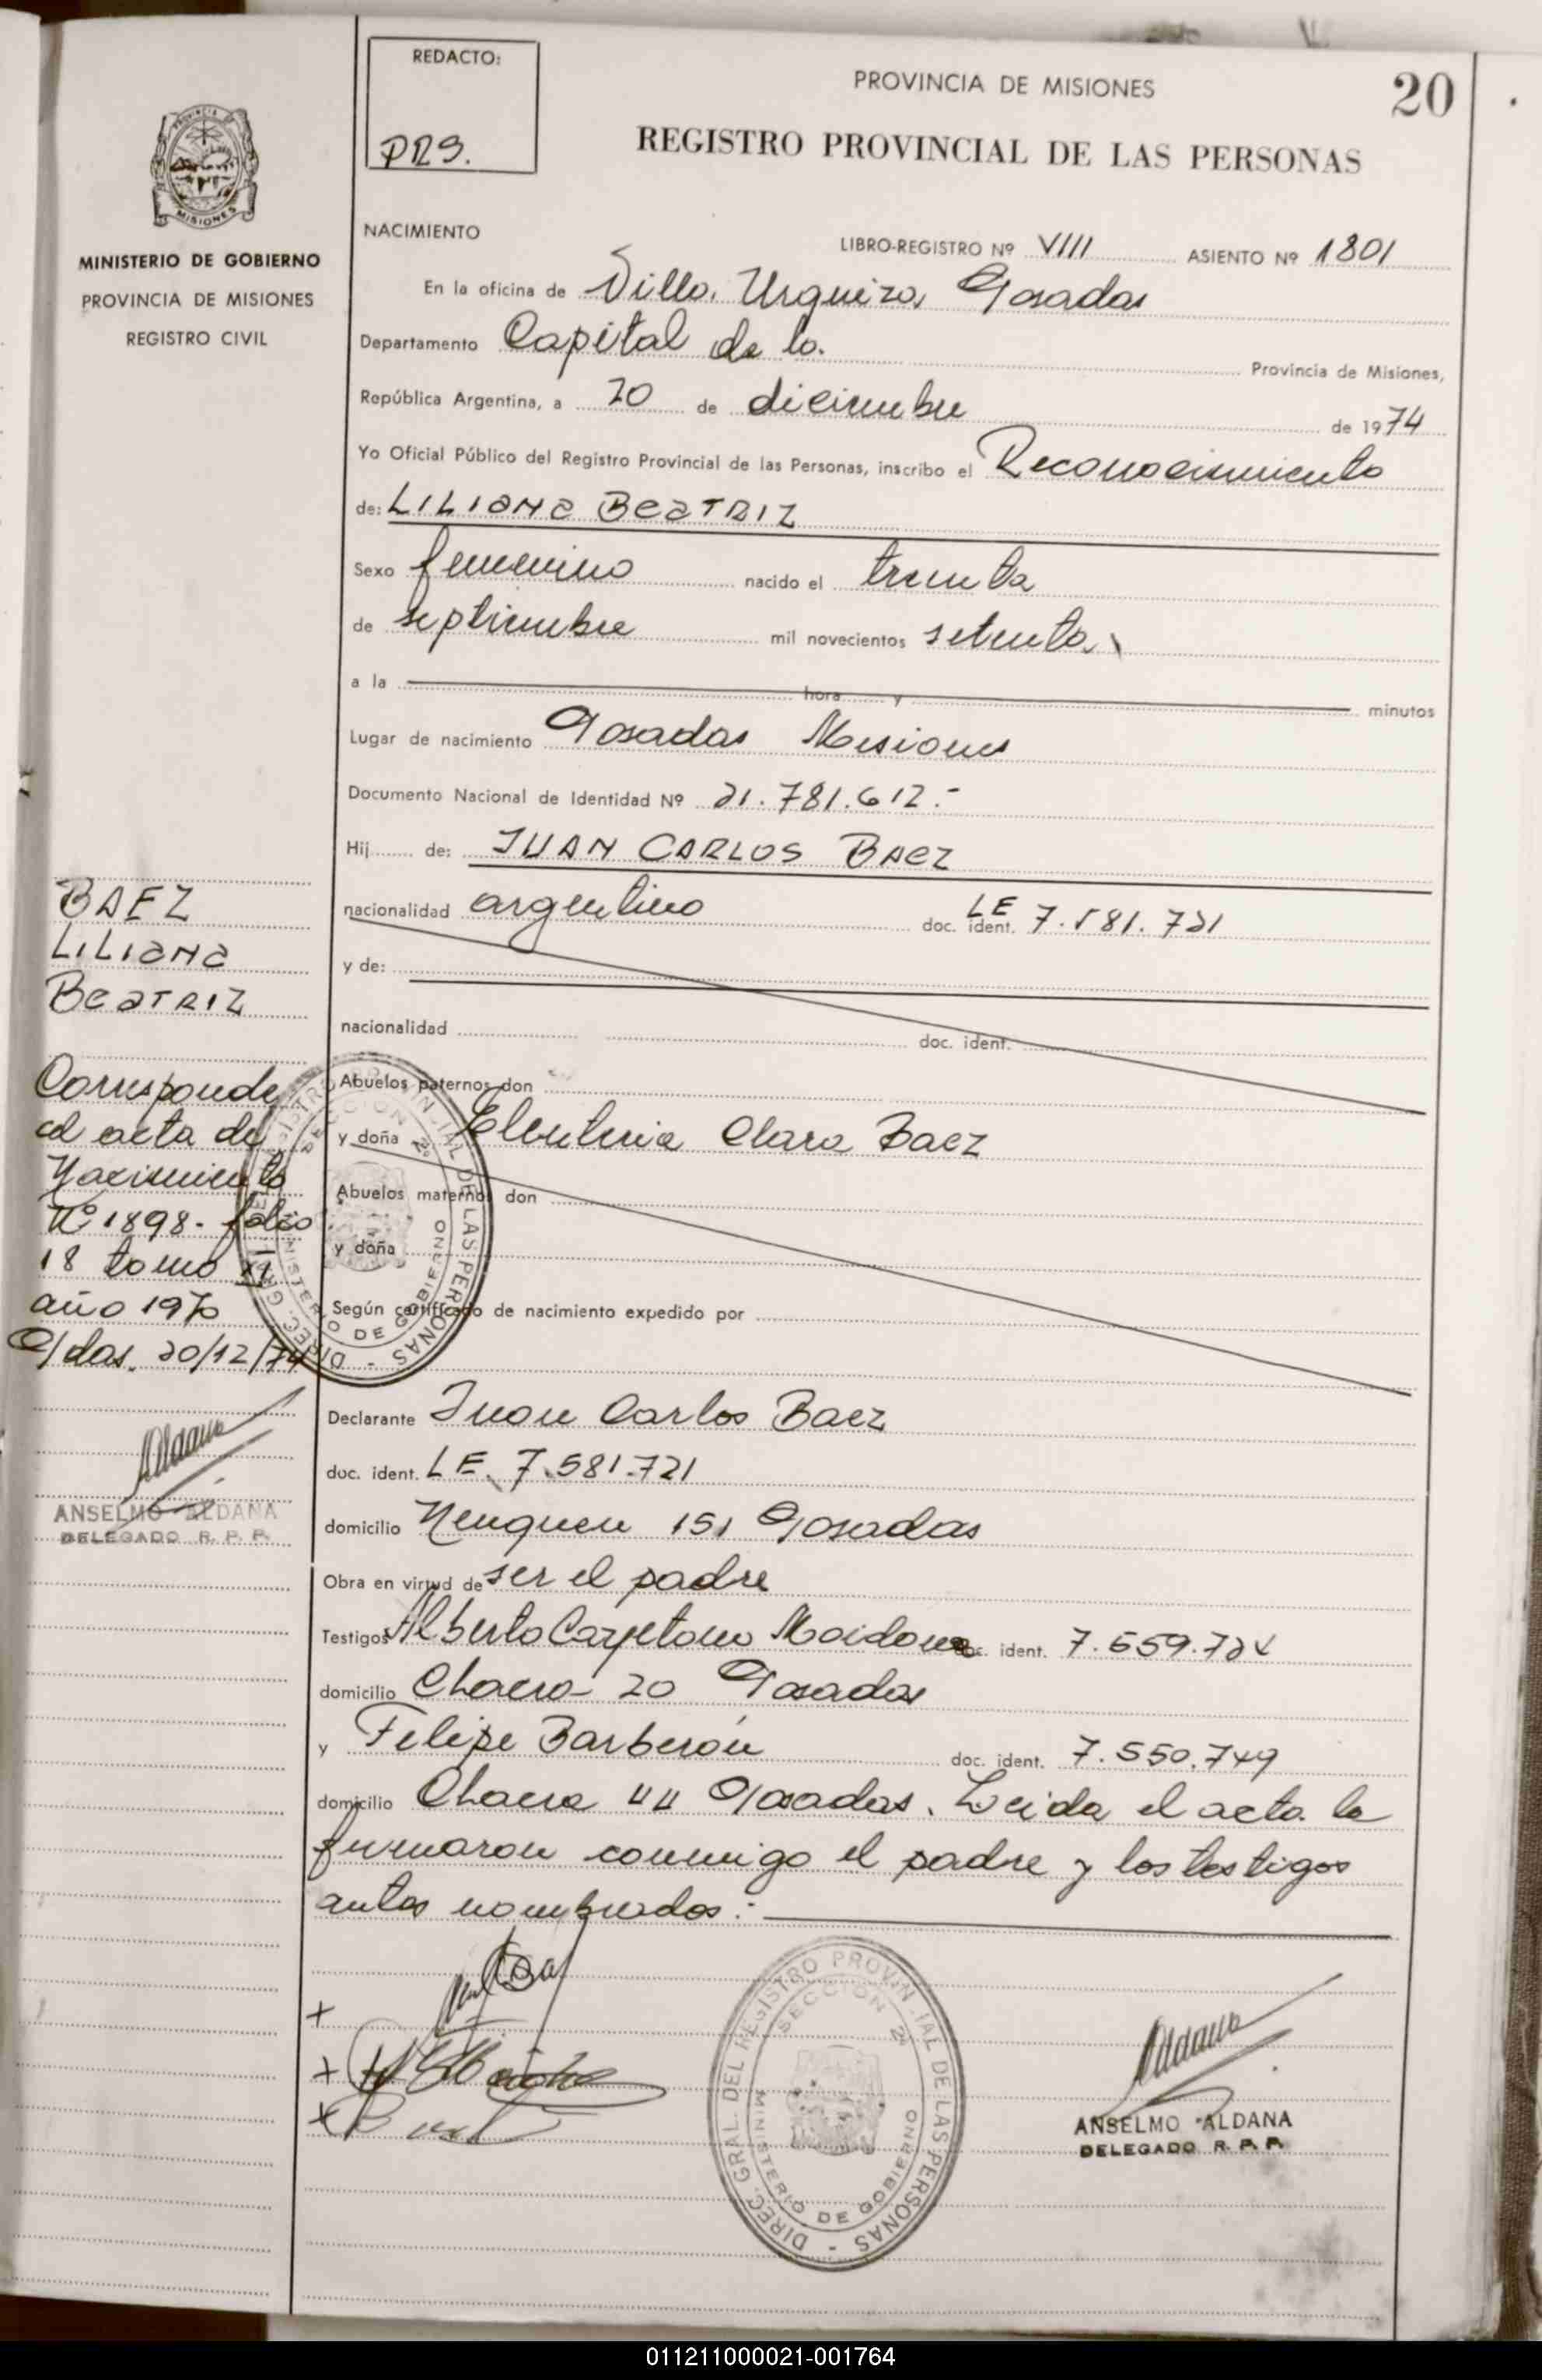 REDACTO:
PRS.
PROVINCIA DE MISIONES
20
REGISTRO PROVINCIAL DE LAS PERSONAS
MISIONES
MINISTERIO DE GOBIERNO
PROVINCIA DE MISIONES
REGISTRO CIVIL
NACIMIENTO
LIBRO-REGISTRO Nº VIII ASIENTO Nº 1801
En la oficina de Villa Urquiza, Posadas
Departamento Capital de la Provincia de Misiones,
República Argentina, a 20 de diciembre de 1974
Yo Oficial Público del Registro Provincial de las Personas, inscribo el Reconocimiento
de: LILIANA BEATRIZ
Sexo femenino nacido el treinta
de septiembre mil novecientos setenta
a la hora y minutos
Lugar de nacimiento Posadas Misiones
Documento Nacional de Identidad Nº 21.781.612.-
Hij de: JUAN CARLOS BAEZ
nacionalidad argentino doc. ident. LE 7.581.721
y de:
nacionalidad doc. ident.
Abuelos paternos don
y doña Eleuteria Clara Baez
Abuelos maternos don
y doña
Según certificado de nacimiento expedido por
Declarante Juan Carlos Baez
doc. ident. LE. 7.581.721
domicilio Neuquen 151 Posadas
Obra en virtud de ser el padre
Testigos Alberto Cayetano Maidana doc. ident. 7.559.724
domicilio Chacra 20 Posadas
y Felipe Barberón doc. ident. 7.550.749
domicilio Chacra 44 Posadas. Leida el acta la
firmaron conmigo el padre y los testigos
antes nombrados:
BAEZ
LILIANA
BEATRIZ
Corresponde
al acta de
Nacimiento
Nº 1898- folio
18 tomo XI
año 1970
P/das. 20/12/74
Aldana
ANSELMO ALDANA
DELEGADO R. P. P.
DIREC. GRAL. DEL REGISTRO PROVINCIAL DE LAS PERSONAS -
SECCION 2ª
MINISTERIO DE GOBIERNO
+
+
+
DIREC. GRAL. DEL REGISTRO PROVINCIAL DE LAS PERSONAS -
SECCION 2ª
MINISTERIO DE GOBIERNO
Aldana
ANSELMO ALDANA
DELEGADO R. P. P.
011211000021-001764